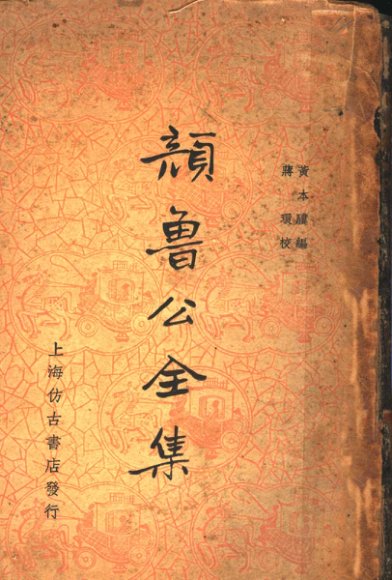 黃本驥編
蔣瓌校
顏魯公全集
上海仿古書店發行